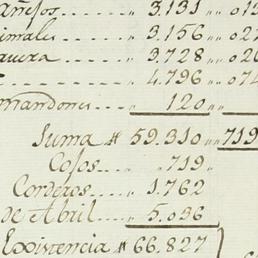 añejos.... 3.131 ,, 01
imales.... 3.156 ,, 02
avera.... 3.728 ,, 026
.... 4.796 ,, 074
mandones.... 120 ,,
Suma # 59.310 ,, 719
Cojos.... ,719 ,
Corderos.... 1.762
de Abril.... 5.036
Existencia # 66.827